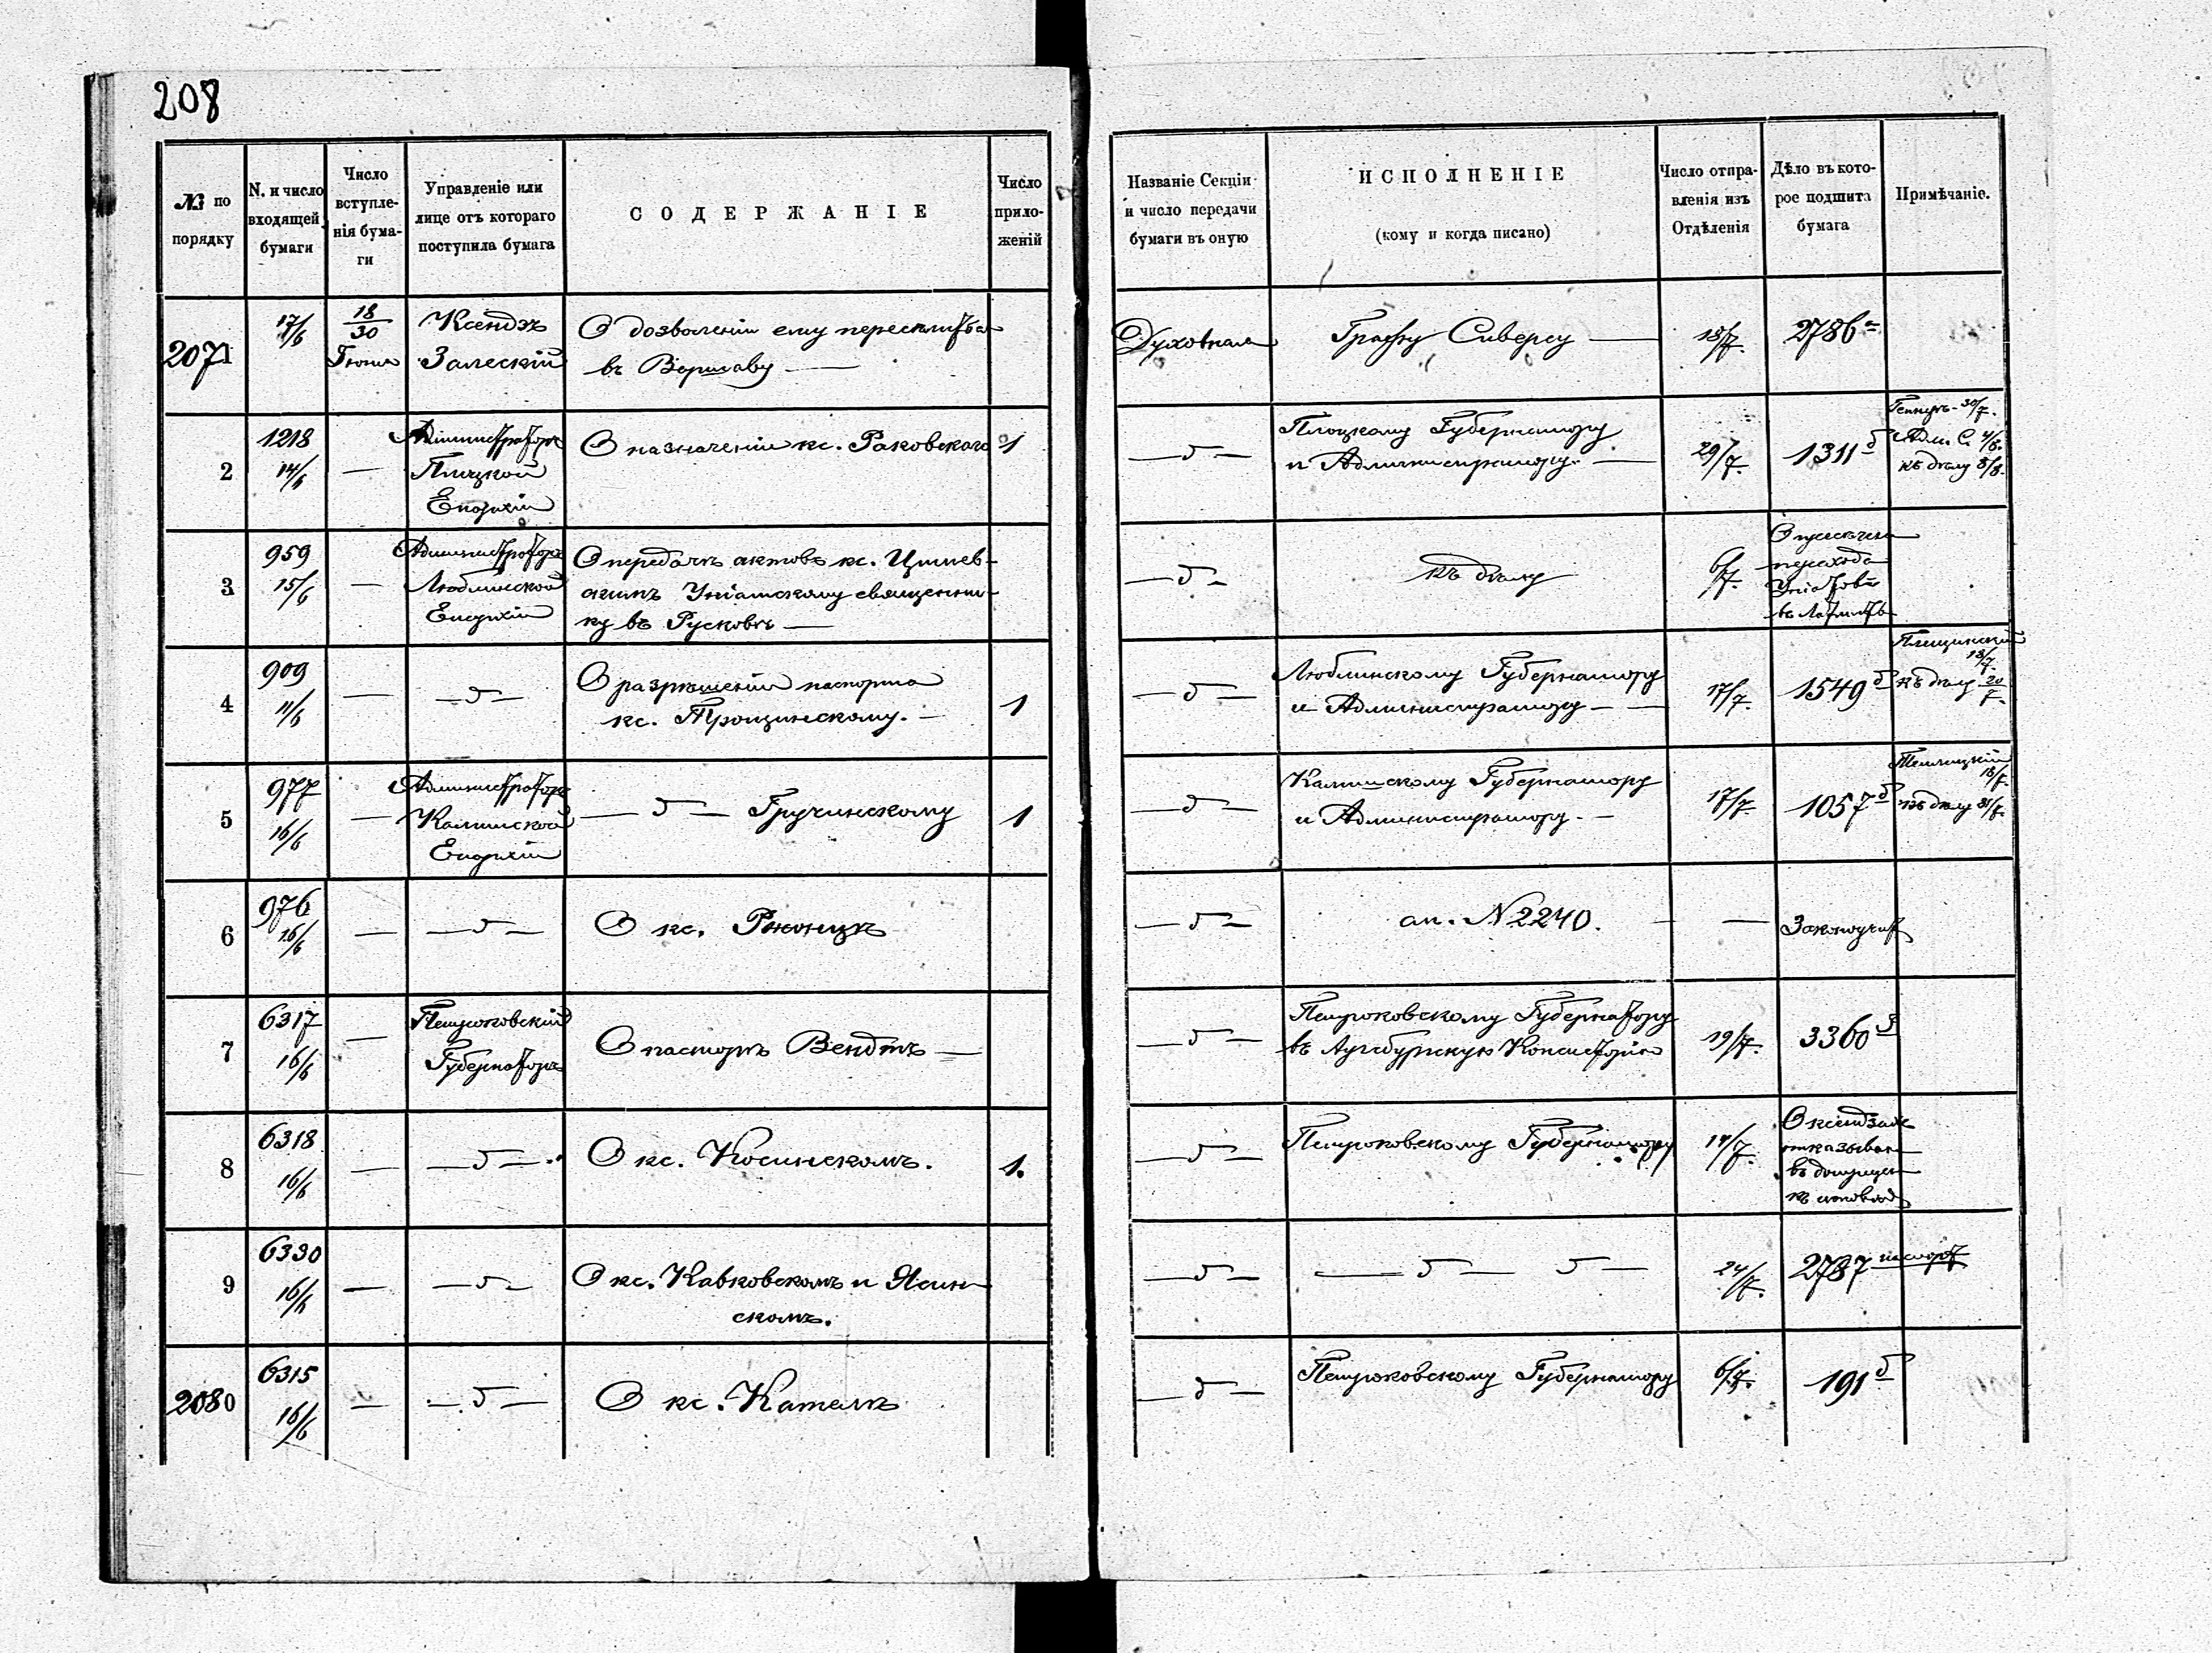 208
№ по порядку
N. и число входящей бумаги
Число вступле-нія бума-ги
Управленіе или лице отъ котораго поступила бумага
СОДЕРЖАНІЕ
Число прило-женій
Названіе Секціи и число передачи бумаги въ оную
ИСПОЛНЕНІЕ
(кому и когда писано)
Число отпра-вленія изъ Отдѣленія
Дѣло въ кото-рое подшита бумага
Примѣчаніе.
2071
17/6
18/30 Іюня
Ксендзъ Залескій
О дозволеніи ему переселиться
въ Варшаву —
Духовная
Графу Сиверсу —
18/7.
2786 а
2
1218
14/6
—
Администраторъ Плоцкой Епархіи
О назначеніи кс. Раковскаго
1
— д —
Плоцкому Губернатору
и Администратору. —
29/7.
1311 б
30/7.
Адм. С. 4/8.
къ дѣлу 8/8.
3
959
15/6
—
Администраторъ Люблинской Епархіи
О передачѣ актовъ кс.
Уніатскому священни-
ку въ Русковѣ —
— д —
къ дѣлу
6/7.
перехода
Уніатовъ
въ
4
909
11/6
—
— д —
О разрѣшеніи паспорта
кс. Трощинскому. —
1
— д —
Люблинскому Губернатору
и Администратору — —
17/7.
1549 б
18/7.
къ дѣлу 20/7.
5
977
16/6
—
Администраторъ Калишской Епархіи
— д — Гручинскому
1
— д —
Калишскому Губернатору
и Администратору. —
17/7.
1057 б
18/7.
къ дѣлу 31/7.
6
976
16/6
—
— д —
О кс.
— д —
ан. N 2240.
—
Законоучит
7
6317
16/6
—
Петроковскій Губернаторъ
О пасторѣ Вендтъ —
— д —
Петроковскому Губернатору
въ Аугсбургскую Консисторію
19/7.
3360
8
6318
16/6
—
— д —
О кс. Косинскомъ.
1.
— д —
Петроковскому Губернатору
17/7.
О ксендзахъ
отказыван
въ
къ исповѣд
9
6330
16/6
—
— д —
О кс. Кавковскомъ и Ясин-
скомъ.
— д —
— д — д —
24/7.
2787 паспорт
2080
6315
16/6
—
— д —
О кс.
— д —
Петроковскому Губернатору
6/7.
191 б